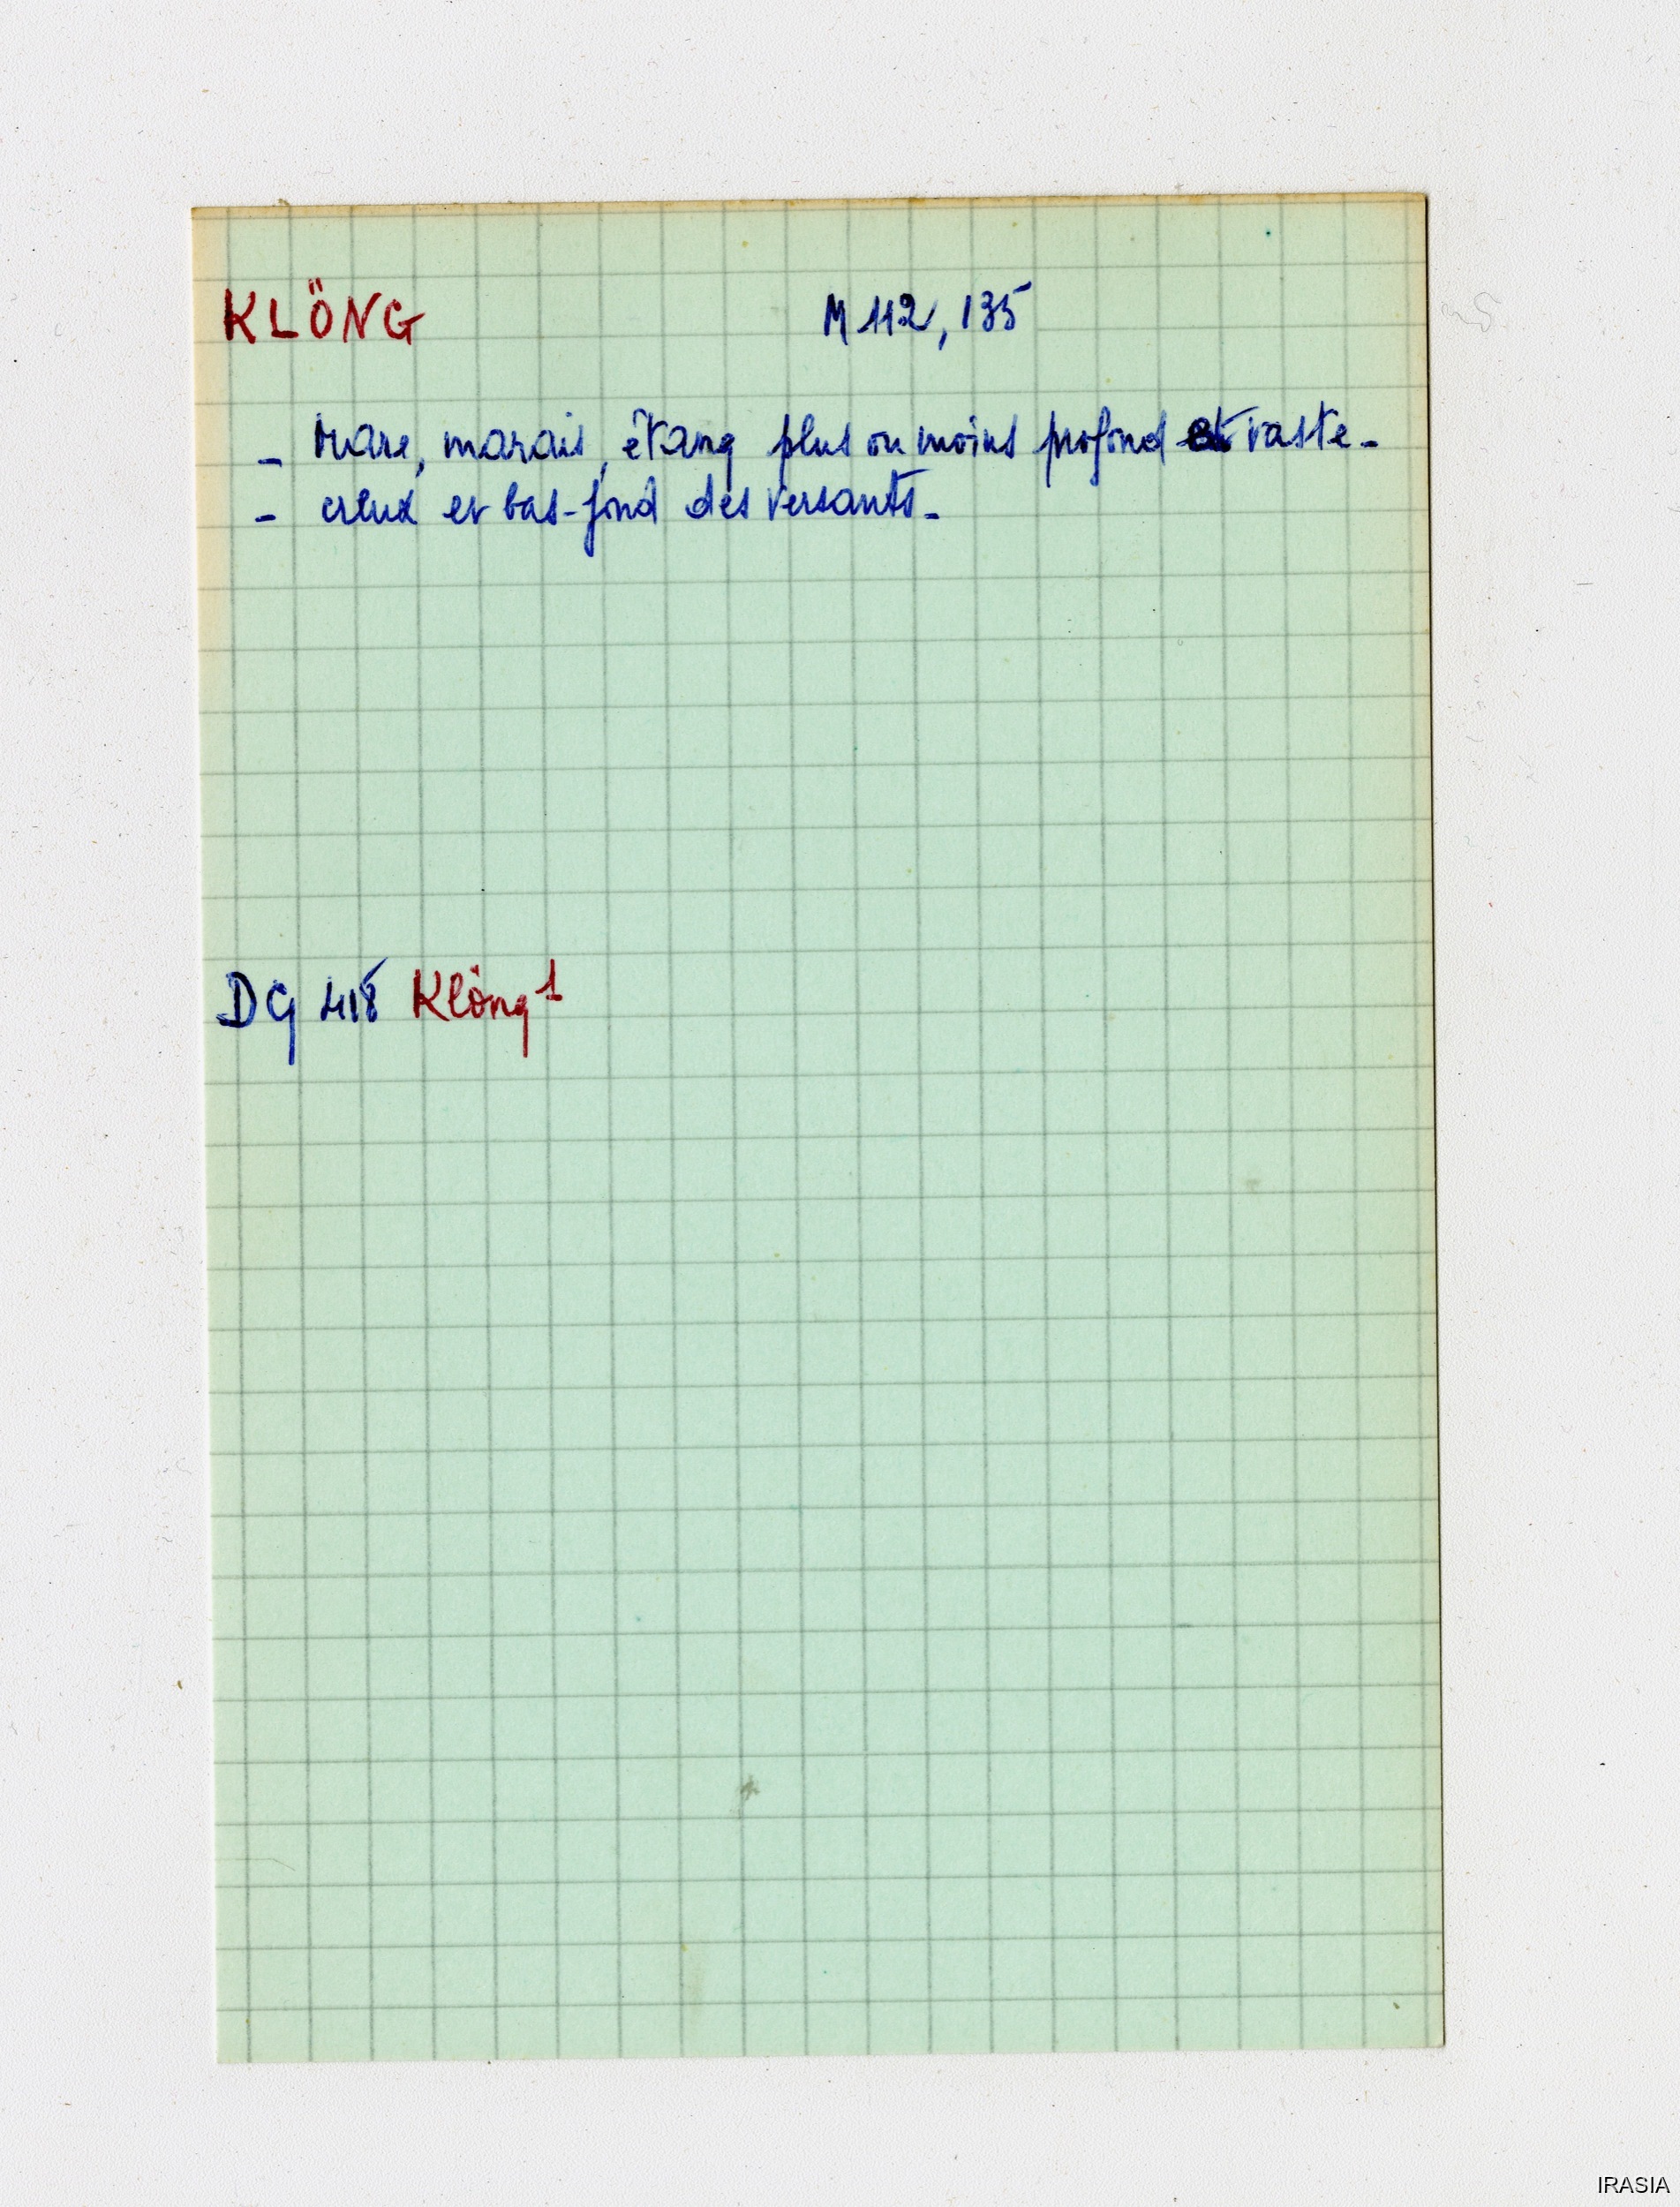 KLÖNG M 112, 135
- Mare, marais, étang plus ou moins profond et vaste -
- creux et bas-fond des versants -
DG 418 Klöng 1
IRASIA